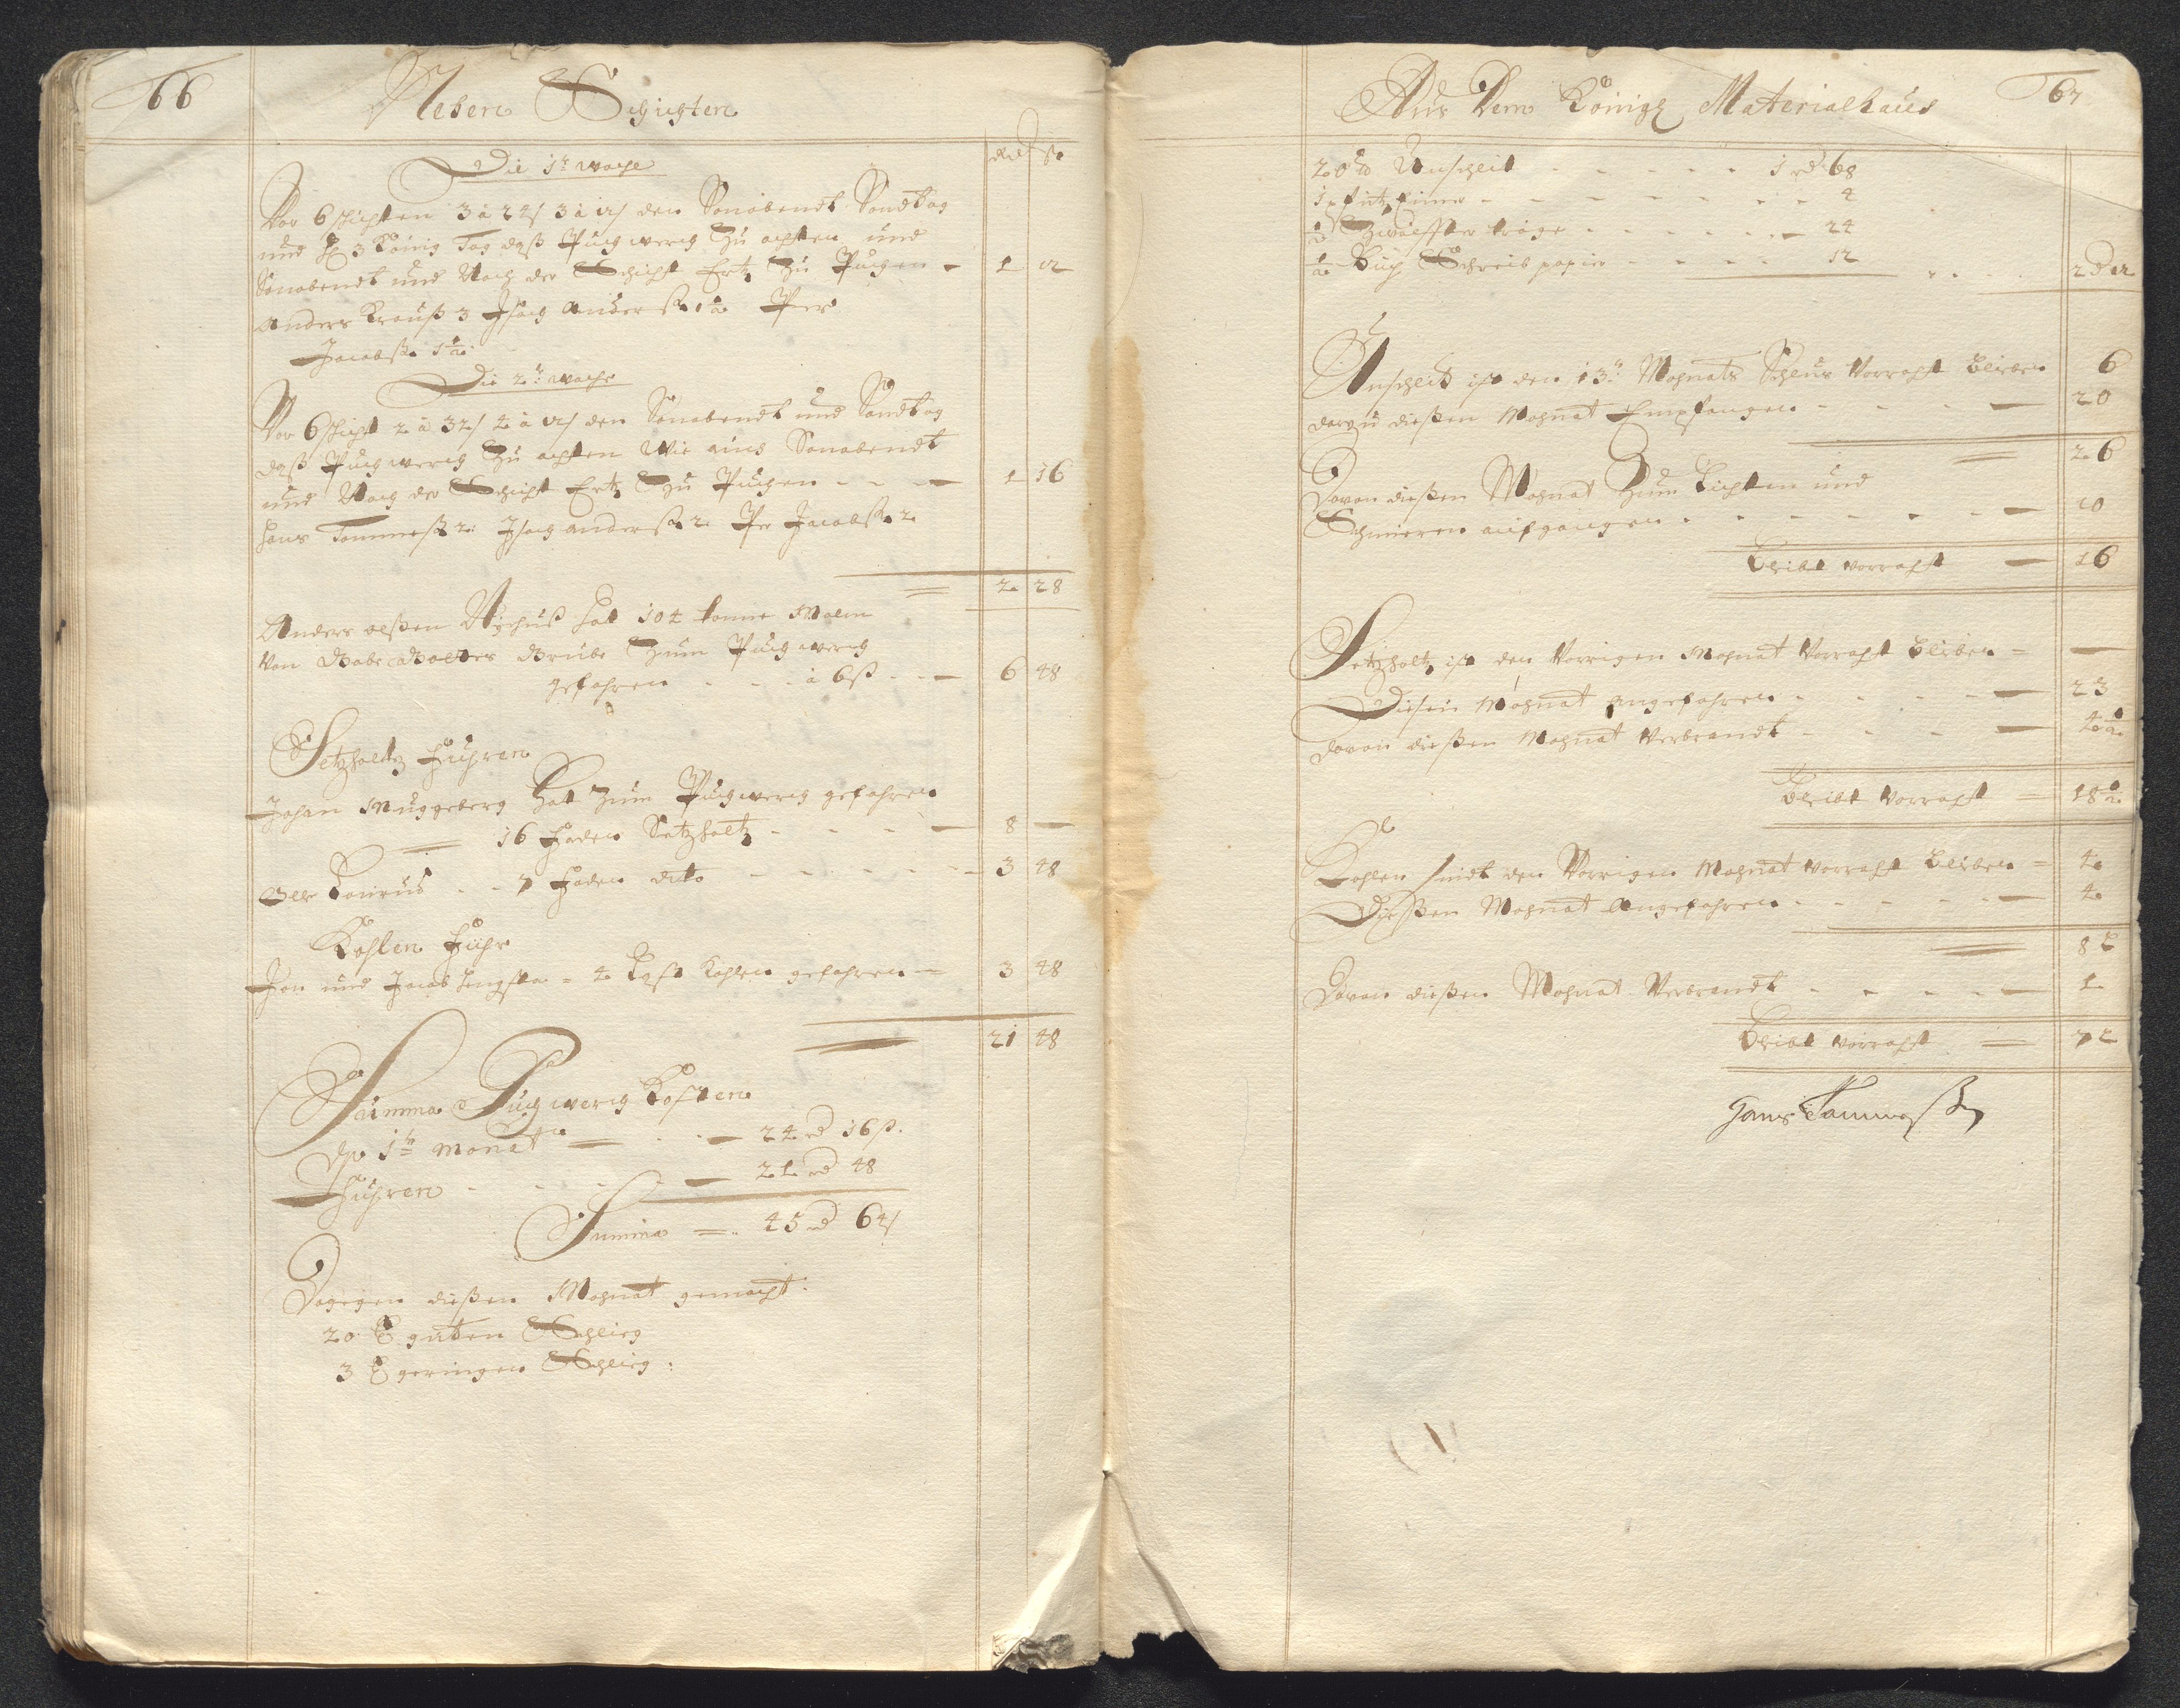 66
Neben Schichten
Rd ß
Die 1te woche
Vor 6 schichten 3 à 24ß 3 à 12ß den Sonabendt Sondtag
und H 3 König Tag daß Puchwerck Zu achten und
Sonabendt und Nach der Schicht Ertz Zu Puchen - 1 12
Anders Krauß 3 Isaac Anderß 1½ Per
Jacobß 1½
Die 2te woche
Vor 6 schicht 2 à 32ß 4 à 12ß den Sonabendt und Sondtag
daß Puchwerck Zu achten Wie auch Sonabendt
und Nach der Schicht Ertz Zu Puchen - - - 1 16
Hans Tommeß 2 Isaac Anderß 2 Per Jacobß 2
2 28
Anders olßen hat 104 tonne Malm
Von Grube Zum Puchwerck
gefahren - - - à 6ß - - 6 48
Setzholtz Fuhren
Johan Muggeberg Hat Zum Puchwerck gefahren
16 Faden Setzholtz - - - - 8 —
Olle - - 7 Faden dito - - - - - 3 48
Kohlen Fuhr
Jon und Jacob = 4 Last Kohlen gefahren = 3 48
21 48
Summa Puchwerck Kosten
1te Monat - - 24 rd 16ß.
Fuhren - - - - - 21 rd 48
Summa = 45 rd 64ß
Dagegen dießen Mohnat gemacht:
20 guten Schlieg
3 geringen Schlieg:
67
Aus Dem Königl Materialhaus
20 lb Unschlit - - - - - 1 rd 68
1 pfütz Eimer - - - - - - - 4
½ Zwölffter tröge - - - - - - 24
½ Buch Schreib papier - - - - 12
2 rd 12
Unschlit ist den 13te Mohnats Schlus Vorraht bleiben 6
darzu dießen Mohnat Empfangen - - - - 20
26
Davon dießen Mohnat Zum Lichten und
Schmieren aufgangen - - - - - - - 10
bleibt vorraht - 16
Setzholtz ist den Vorrigen Mohnat Vorraht bleiben = —
Diesen Mohnat angefahren - - - - - 23
davon dießen Mohnat Verbrandt - - - - 4½
bleibt Vorraht = 18½
Kohlen sindt den Vorrigen Mohnat vorraht bleiben = 4
Dießen Mohnat Angefahren - - - - - - 4
8 L
Davon dießen Mohnat Verbrandt - - - - - 1
bleibt vorraht = 7 L
Hans Tommeßen